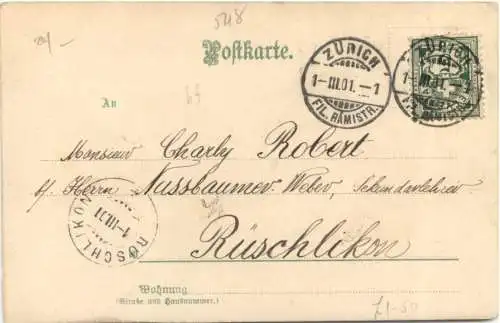 548
Postkarte.
ZÜRICH
1-III.01.-1
FIL. RÄMISTR.
ZÜRICH
1-III.01.-1
FIL. RÄMISTR.
An
Monsieur Charly Robert
p/. Herrn Nussbaumer-Weber, Sekundarlehrer
Rüschlikon
RÜSCHLIKON
1-III.01
Wohnung
(Straße und Hausnummer.)